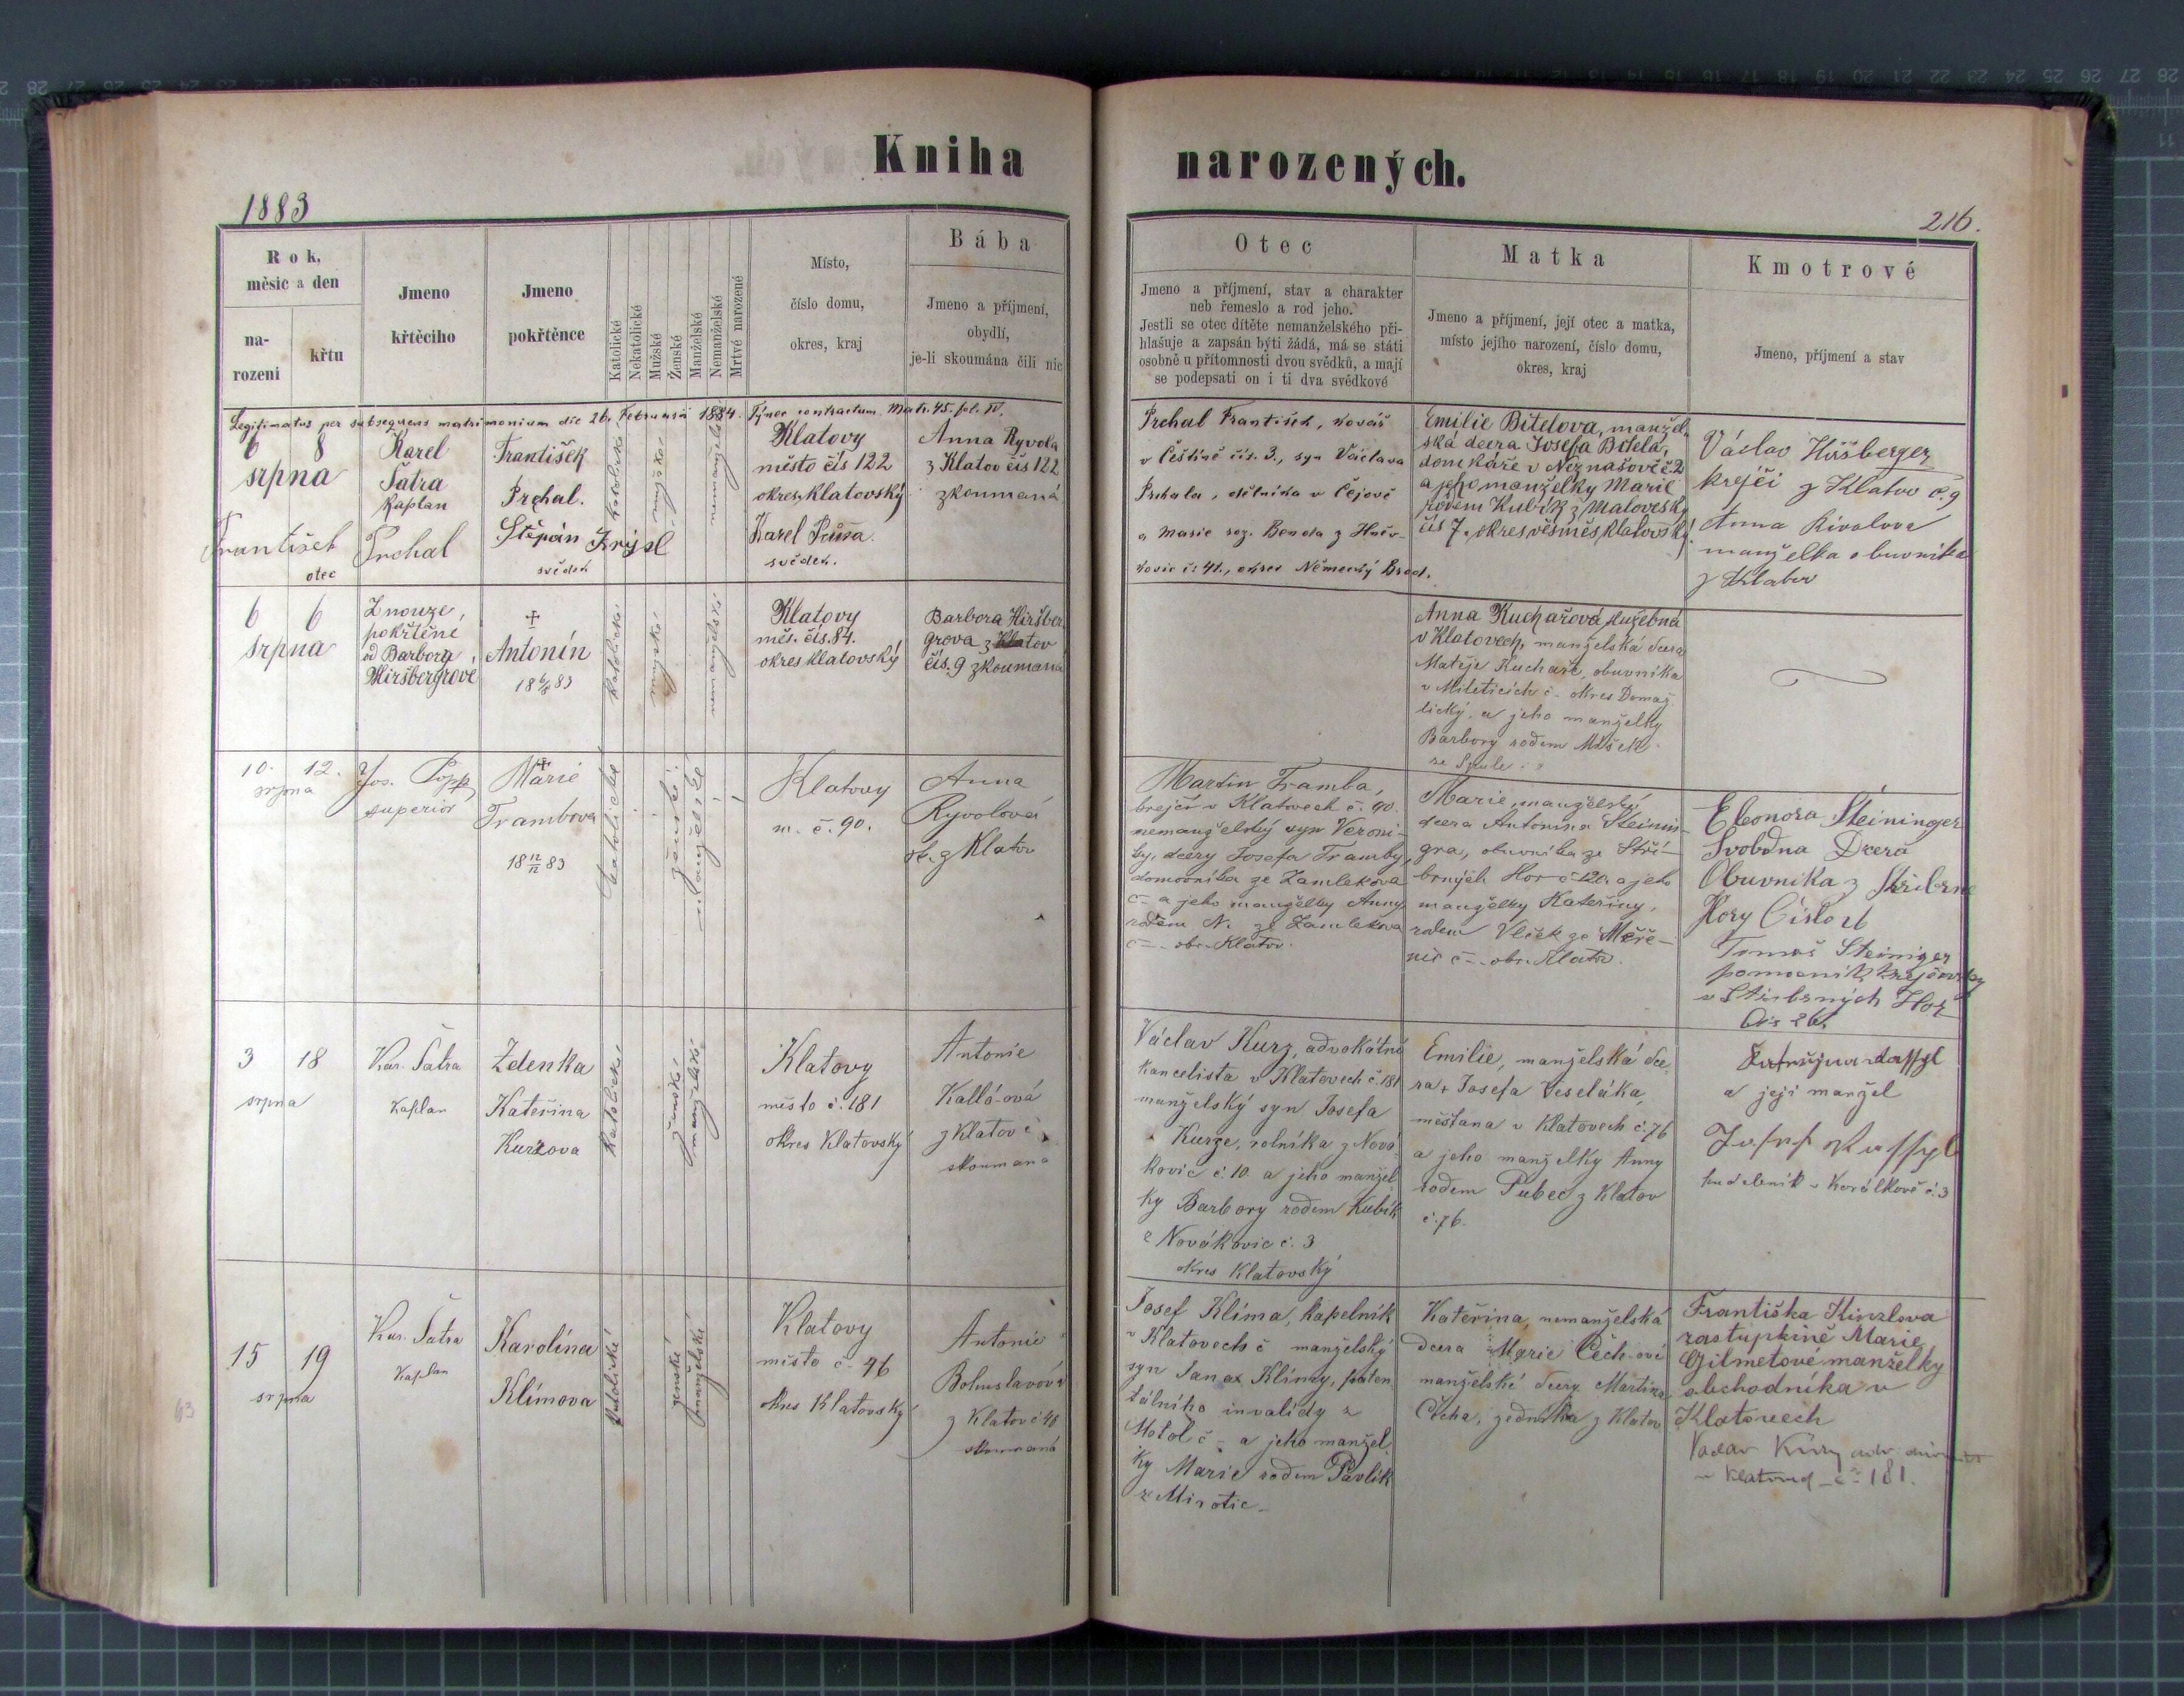 Kniha narozených.
1883
216.
Rok,
měsíc a den
na-
rozeni
křtu
Jmeno
křtěcího
Jmeno
pokřtěnce
Katolické
Nekatolické
Mužské
Ženské
Manželské
Nemanželské
Mrtvé narozené
Místo,
číslo domu,
okres, kraj
Bába
Jmeno a příjmení,
obydlí,
je-li skoumána čili nic
Otec
Jmeno a příjmení, stav a charakter
neb řemeslo a rod jeho.
Jestli se otec dítěte nemanželského při-
hlašuje a zapsán býti žádá, má se státi
osobně u přítomnosti dvou svědků, a mají
se podepsati on i ti dva svědkové
Matka
Jmeno a příjmení, její otec a matka,
místo jejího narození, číslo domu,
okres, kraj
Kmotrové
Jmeno, příjmení a stav
Legitimatus per subsequens matrimonium die 26. Februarii 1884. Týnec contractum. Matr. 45. fol. IV.
6 8
srpna
Karel
Šatra
Kaplan
František
Prchal.
katolické
mužské
nemanželské
Klatovy
město čís 122
okres klatovský
Anna Ryvola
z Klatov čís 122
zkoumaná
František Prchal
otec
Štěpán Krýsl
svědek
Karel
svědek.
Prchal František, kovář
v Češtině čís. 3., syn Václava
Prchala, dělníka v Čejově
a Marie roz. Benda z Hněv-
kovic č: 41., okres Německý Brod.
Emilie Bitelova, manžel.
ská dcera Josefa Bitela,
domkáře v Neznašově č. 2
a jeho manželky Marie
rodem Kubík z Malovesky
čís 7. okres věsměs klatovský
Václav Hiršberger
krejčí z Klatov č. 9
Anna Rivolova
manželka obuvníka
z Klatov
6 6
srpna
Z nouze,
pokřtěné
od Barbory
Hiršbergrove
Antonín
18 6/8 83
katolické
mužské
nemanželské
Klatovy
měs. čís. 84.
okres klatovský
Barbora Hiršber
grova z Klatov
čís. 9 zkoumaná
Anna Kuchařová služebná
v Klatovech, manželská dcera
Matěje Kuchaře, obuvníka
v Mileticích č - okres Domaž
lický, a jeho manželky
Barbory rodem Mašek
ze
10. 12.
srpna
Jos. Popp
superior
Marie
Trambova
18 12/12 83
katolické
ženské
manželské
Klatovy
m. č. 90.
Anna
Ryvolová
z Klatov
Martin Tramba,
krejčí v Klatovech č. 90.
nemanželský syn Veroni-
ky, dcery Josefa Tramby,
domovníka ze Zamlekova
č - a jeho manželky Anny
rodem N. ze Zamlekova
č - obr. Klatov.
Marie, manželská
dcera Antonína Steinin-
gra, obuvníka ze Stří-
brných Hor č 126. a jeho
manželky Kateřiny,
rodem Vlček ze Měče-
nic č - obr. Klatov.
Eleonora Steininger
Svobdna Dcera
Obuvnika z Střibrne
Hory Číslo 26
Tomaš Steiniger
pomocnik krejčovsky
v Stribrných Hor
Čis 26.
3 18
srpna
Kar. Šatra
Kaplan
Zdenka
Kateřina
Kurzova
katolické
ženské
manželské
Klatovy
město č. 181
okres Klatovský
Antonie
Kallá-ová
z Klatov č
skoumana
Václav Kurz, advokátní
kancelista v Klatovech č. 181
manželský syn Josefa
Kurze, rolníka z Nová-
kovic č. 10 a jeho manžel-
ky Barbory rodem Kubík
z Novákovic č. 3
okres Klatovský
Emilie, manželská dce-
ra + Josefa Veseláka,
měšťana v Klatovech č. 76
a jeho manželky Anny
rodem Pubec z Klatov
č. 76.
a její manžel
v Korálkově č. 3
15 19
srpna
Kar. Šatra
Kaplan
Karolína
Klímova
katolické
ženské
manželské
Klatovy
město č - 46
okres Klatovský
Antonie
Bohuslavová
z Klatov č 48
skoumaná
Josef Klíma, kapelník
v Klatovech č manželský
syn Jana Klímy, paten-
tálního invalidy z
Motol č - a jeho manžel-
ky Marie rodem Pavlík
z Mirotic -
Kateřina, nemanželská
dcera Marie Čech-ové
manželské dcery Martina
Čecha, zedníka z Klatov
Františka Kinzlova
zastupkině Marie
Gilmetové manželky
obchodníka v
Klatovech
Vaclav Kurz adv.
v Klatovech č 181.
63